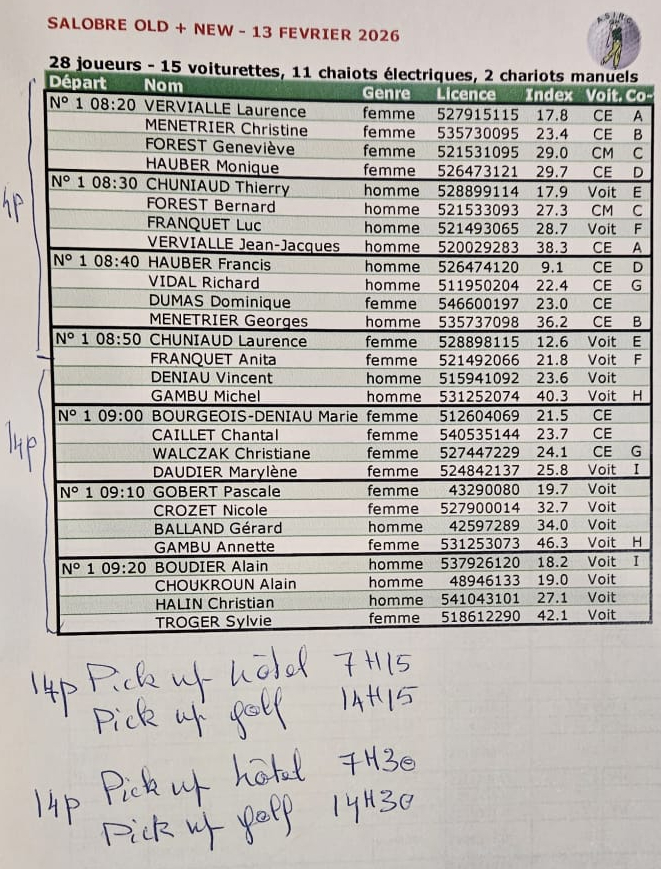 SALOBRE OLD + NEW - 13 FEVRIER 2026
A.S.I.R.G
28 joueurs - 15 voiturettes, 11 chaiots électriques, 2 chariots manuels
Départ Nom Genre Licence Index Voit. Co-
N° 1 08:20 VERVIALLE Laurence femme 527915115 17.8 CE A
MENETRIER Christine femme 535730095 23.4 CE B
FOREST Geneviève femme 521531095 29.0 CM C
HAUBER Monique femme 526473121 29.7 CE D
N° 1 08:30 CHUNIAUD Thierry homme 528899114 17.9 Voit E
FOREST Bernard homme 521533093 27.3 CM C
FRANQUET Luc homme 521493065 28.7 Voit F
VERVIALLE Jean-Jacques homme 520029283 38.3 CE A
N° 1 08:40 HAUBER Francis homme 526474120 9.1 CE D
VIDAL Richard homme 511950204 22.4 CE G
DUMAS Dominique femme 546600197 23.0 CE
MENETRIER Georges homme 535737098 36.2 CE B
N° 1 08:50 CHUNIAUD Laurence femme 528898115 12.6 Voit E
FRANQUET Anita femme 521492066 21.8 Voit F
DENIAU Vincent homme 515941092 23.6 Voit
GAMBU Michel homme 531252074 40.3 Voit H
N° 1 09:00 BOURGEOIS-DENIAU Marie femme 512604069 21.5 CE
CAILLET Chantal femme 540535144 23.7 CE
WALCZAK Christiane femme 527447229 24.1 CE G
DAUDIER Marylène femme 524842137 25.8 Voit I
N° 1 09:10 GOBERT Pascale femme 43290080 19.7 Voit
CROZET Nicole femme 527900014 32.7 Voit
BALLAND Gérard homme 42597289 34.0 Voit
GAMBU Annette femme 531253073 46.3 Voit H
N° 1 09:20 BOUDIER Alain homme 537926120 18.2 Voit I
CHOUKROUN Alain homme 48946133 19.0 Voit
HALIN Christian homme 541043101 27.1 Voit
TROGER Sylvie femme 518612290 42.1 Voit
14p
14p Pick up hôtel 7H15
Pick up golf 14H15
14p Pick up hôtel 7H30
Pick up golf 14H30